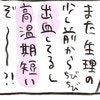 また生理
少し前から
ちびちび
出血してるし
高温期短い
ぞ〜〜?!